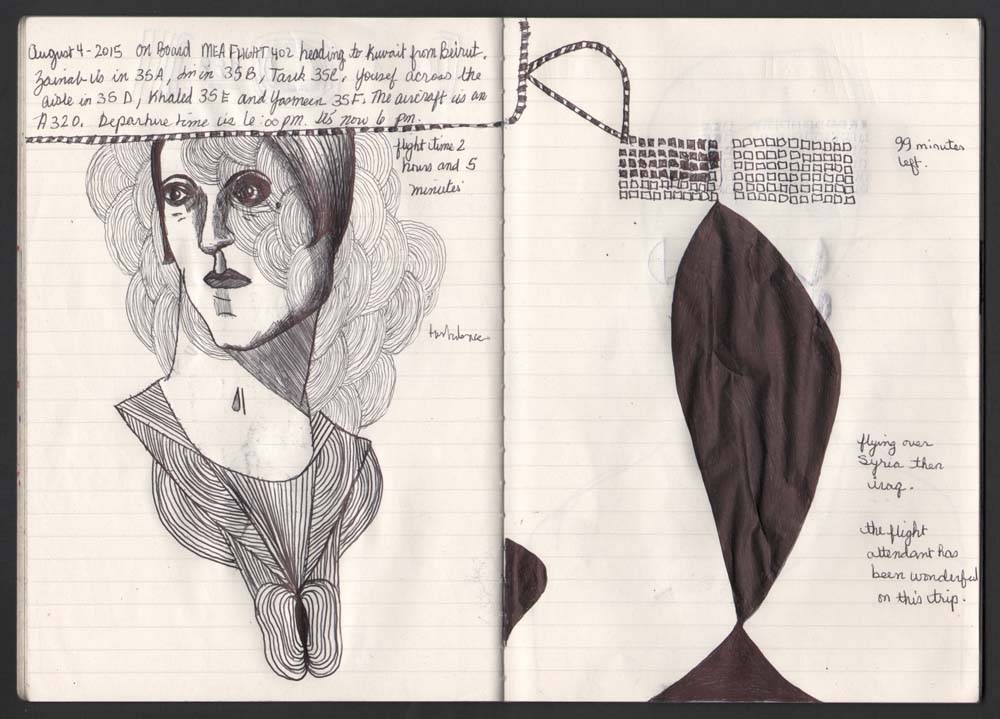 August 4-2015 on Board MEA FLIGHT 402 heading to Kuwait from Beirut.
Zainab is in 35A, in 35B, Tarek 35C, Yousef across the
aisle in 35 D, Khaled 35E and Yasmeen 35F. The aircraft is an
A320. Departure time is 6:00 pm. It's now 6 pm.
flight time 2
hours and 5
minutes
99 minutes
left.
turbulence
flying over
Syria then
iraq.
the flight
attendant has
been wonderful
on this trip.